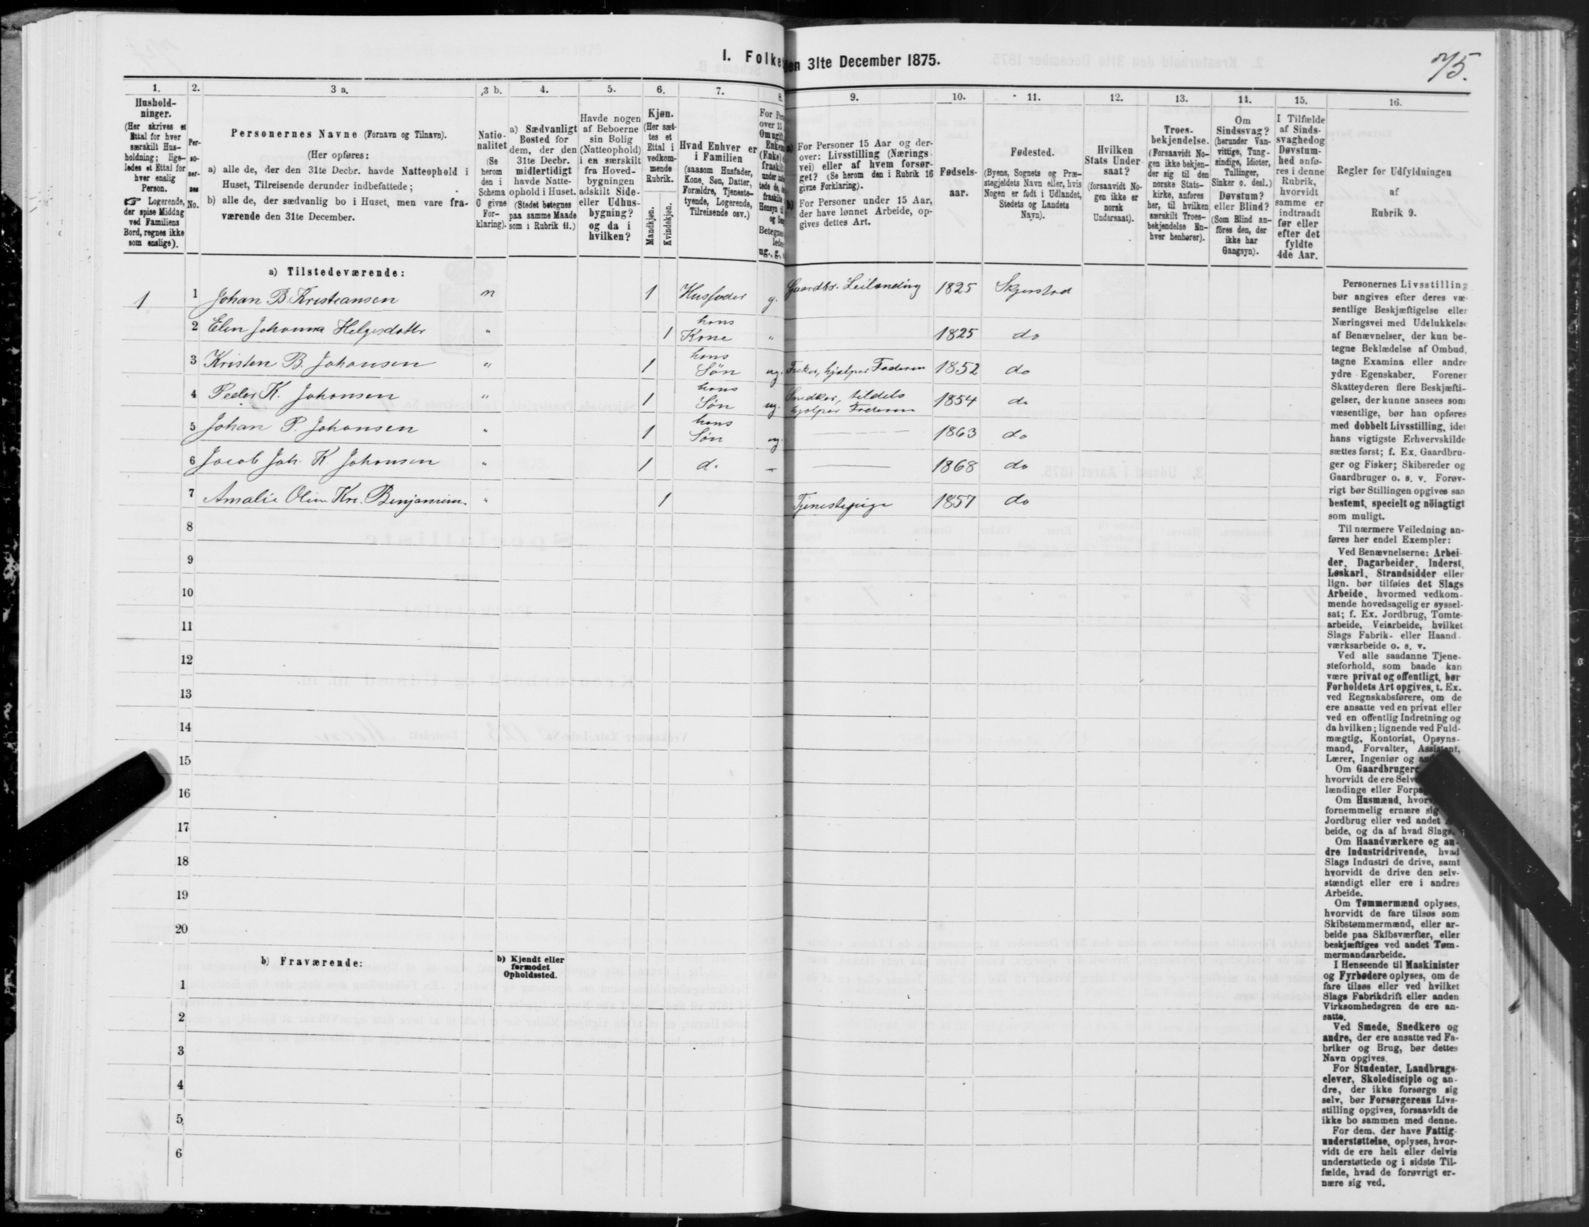 I. Folke en 31te December 1875.
75.
1.
2.
3 a.
3 b.
4.
5.
6.
7.
8.
9.
10.
11.
12.
13.
11.
15.
16.
Hushold-
ninger.
(Her skrives et
Ettal for hver
særskilt Hus-
holdning; lige-
ledes et Ettal for
hver enslig
Person.
☞ Logerende,
der spise Middag
ved Familiens
Bord, regnes ikke
som enslige).
Per-
so-
ner-
nes
No.
Personernes Navne (Fornavn og Tilnavn).
(Her opføres:
a) alle de, der den 31te Decbr. havde Natteophold i
Huset, Tilreisende derunder indbefattede;
b) alle de, der sædvanlig bo i Huset, men vare fra-
værende den 31te December.
Natio-
nalitet
(Se
herom
den i
Schema
C givne
For-
klaring).
a) Sædvanligt
Bosted for
dem, der den
31te Decbr.
midlertidigt
havde Natte-
ophold i Huset.
(Stedet betegnes
paa samme Maade
som i Rubrik 11.)
Havde nogen
af Beboerne
sin Bolig
(Natteophold)
i en særskilt
fra Hoved-
bygningen
adskilt Side-
eller Udhus-
bygning?
og da i
hvilken?
Kjøn.
(Her sæt-
tes et
Ettal i
vedkom-
mende
Rubrik.
Mandkjøn.
Kvindekjøn.
Hvad Enhver er
i Familien
(saasom Husfader,
Kone, Søn, Datter,
Forældre, Tjenestetyende, Logerende,
Tilreisende osv.)
For Personer 15 Aar og der-
over: Livsstilling (Nærings-
vei) eller af hvem forsør-
get? (Se herom den i Rubrik 16
givne Forklaring).
For Personer under 15 Aar,
der have lønnet Arbeide, op-
gives dettes Art.
Fødsels-
aar.
Fødested.
(Byens, Sognets og Præ-
stegjeldets Navn eller, hvis
Nogen er født i Udlandet,
Stedets og Landets
Navn).
Hvilken
Stats Under-
saat?
(forsaavidt No-
gen ikke er
norsk
Undersaat).
Troes-
bekjendelse.
(Forsaavidt No-
gen ikke bekjen-
der sig til den
norske Stats-
kirke, anføres
her, til hvilken
særskilt Troes-
bekjendelse En-
hver henhører).
Om
Sindssvag?
(herunder Van-
vittige, Tung-
sindige, Idioter,
Tullinger,
Sinker o. desl.)
Døvstum?
eller Blind?
(Som Blind an-
føres den, der
ikke har
Gangsyn).
I Tilfælde
af Sinds-
svaghed og
Døvstum-
hed anfø-
res i denne
Rubrik,
hvorvidt
samme er
indtraadt
før eller
efter det
fyldte
4de Aar.
Regler for Udfyldningen
af
Rubrik 9.
a) Tilstedeværende:
1 1 Johan B Kristiansen n 1 Husfader g. Gaardbr. Leilending 1825 Skjerstad
2 Elen Johanna Helgesdatter " 1 hans Kone " 1825 do
3 Kristen B. Johansen " 1 hans Søn ug. Fisker, hjelper Faderen 1852 do
4 Peder K. Johansen " 1 hans Søn ug. Snedker, tildels hjelper Faderen 1854 do
5 Johan P. Johansen " 1 hans Søn ug. 1863 do
6 Jacob Joh. K Johansen " 1 d. 1868 do
7 Amalie Oline Kr. Benjaminsen " 1 Tjenestepige 1857 do
8
9
10
11
12
13
14
15
16
17
18
19
20
b) Fraværende:
b) Kjendt eller
formodet
Opholdssted.
1
2
3
4
5
6
Personernes Livsstilling
bør angives efter deres væ-
sentlige Beskjæftigelse eller
Næringsvei med Udelukkelse
af Benævnelser, der kun be-
tegne Beklædelse af Ombud,
tagne Examina eller andre
ydre Egenskaber. Forener
Skatteyderen flere Beskjæfti-
gelser, der kunne ansees som
væsentlige, bør han opføres
med dobbelt Livsstilling, idet
hans vigtigste Erhvervskilde
sættes først; f. Ex. Gaardbru-
ger og Fisker; Skibsreder og
Gaardbruger o. s. v. Forøv-
rigt bør Stillingen opgives saa
bestemt, specielt og nöiagtigt
som muligt.
Til nærmere Veiledning an-
føres her endel Exempler:
Ved Benævnelserne: Arbei-
der, Dagarbeider, Inderst,
Løskarl, Strandsidder eller
lign. bør tilføies det Slags
Arbeide, hvormed vedkom-
mende hovedsagelig er syssel-
sat; f. Ex. Jordbrug, Tomte-
arbeide, Veiarbeide, hvilket
Slags Fabrik- eller Haand-
værksarbeide o. s. v.
Ved alle saadanne Tjene-
steforhold, som baade kan
være privat og offentligt, bør
Forholdets Art opgives, t. Ex.
ved Regnskabsførere, om de
ere ansatte ved en privat eller
ved en offentlig Indretning og
da hvilken; lignende ved Fuld-
mægtig, Kontorist, Opsyns-
mand, Forvalter, Assistent,
Lærer, Ingeniør og
Om Gaardbrugere
hvorvidt de ere Selv
lændinge eller Forp
Om Husmænd, hvor
fornemmelig ernære sig
Jordbrug eller ved andet
beide, og da af hvad Slags.
Om Haandværkere og an-
dre Industridrivende, hvad
Slags Industri de drive, samt
hvorvidt de drive den selv-
stændigt eller ere i andres
Arbeide.
Om Tømmermænd oplyses,
hvorvidt de fare tilsøs som
Skibstømmermænd, eller ar-
beide paa Skibsværfter, eller
beskjæftiges ved andet Tøm-
mermandsarbeide.
I Henseende til Maskinister
og Fyrbødere oplyses, om de
fare tilsøs eller ved hvilket
Slags Fabrikdrift eller anden
Virksomhedsgren de ere an-
satte.
Ved Smede, Snedkere og
andre, der ere ansatte ved Fa-
briker og Brug, bør dettes
Navn opgives.
For Studenter, Landbrugs-
elever, Skoledisciple og an-
dre, der ikke forsørge sig
selv, bør Forsørgerens Livs-
stilling opgives, forsaavidt de
ikke bo sammen med denne.
For dem, der have Fattig-
understøttelse, oplyses, hvor-
vidt de ere helt eller delvis
understøttede og i sidste Til-
fælde, hvad de forøvrigt er-
nære sig ved.